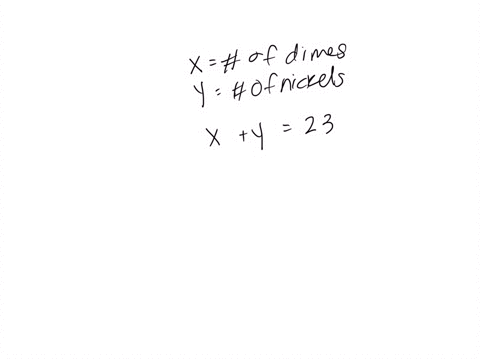 x = # of dimes
y = # of nickels
x + y = 23